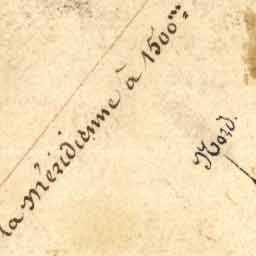 la méridienne à 1500m.
Nord.